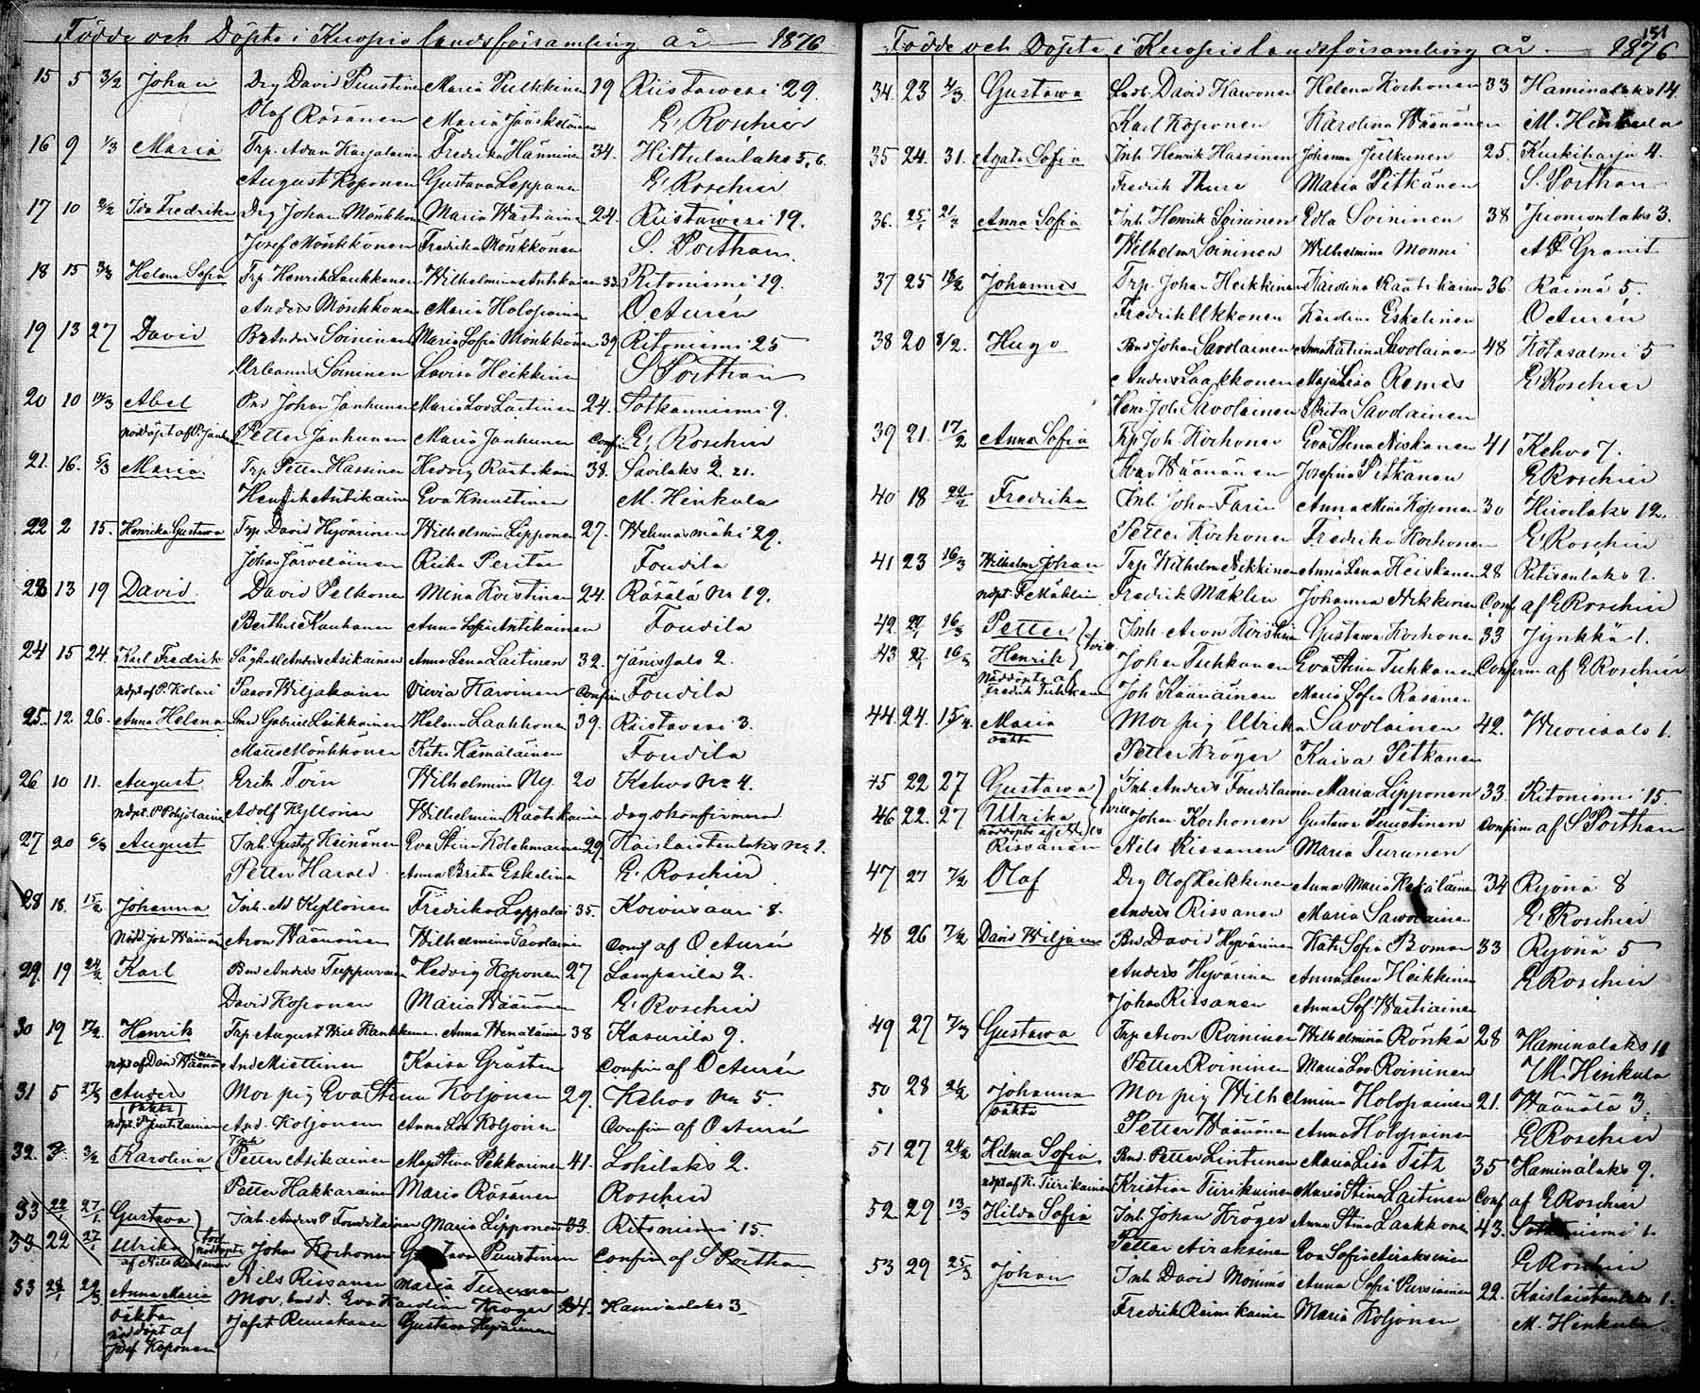 Födde och Döpte i Kuopio landsförsamling år 1876
15 5 3/2 Johan Drg David Puustinen Maria Pulkkinen 19 Riistawesi 29.
Olof Räsänen Maria Jääskeläinen E. Roschier
16 9 1/3 Maria Trp. Adam Karjalainen Fredrika Hänninen 34. Hiltulanlaks 5, 6.
August Koponen Gustava Leppänen E. Roschier
17 10 2/2 Ida Fredrika Drg Johan Mönkkönen Maria Wastiainen 24. Riistawesi 19.
Josef Mönkkönen Fredrika Mönkkönen S. Porthan
18 15 3/3 Helena Sofia Trp Henrik Laukkanen Wilhelmina Antikainen 33 Ritoniemi 19.
Anders Mönkkönen Maria Holopainen O Aturén
19 13 27 David Anders Soininen Maria Sofia Mönkkönen 39 Ritoniemi 25
Urbanus Soininen Lovisa Heikkinen S Porthan
20 10 Abel Bnd Johan Janhunen Maria Lov Laitinen 24. Sotkanniemi 9.
nöddöpt af P. Janhunen Petter Janhunen Maria Janhunen Confir. E. Roschier
21. 16. 5/3 Maria Trp. Petter Hassinen Hedvig Rautiainen 38. Savilaks 2. 21.
Henrik Antikainen Eva Knuutinen M. Henkula
22 2 15. Henrika Gustava Trp David Hyvärinen Wilhelmina Lipponen 27. Wehmasmäki 29.
Johan Järveläinen Riika Peritar Foudila
23 13 19 David David Pelkonen Mina Koistinen 24. Räsälä No 19.
Berthil Kauhanen Anna Sofia Antikainen Foudila
24 15 24. Karl Fredrik Anders Asikainen Anna Lena Laitinen 32. Jänissalo 2.
ndpt af P. Kolari Paavo Wiljakainen Vieria Karvinen Confirm Foudila
25. 12 26. Anna Helena Gabriel Leikkainen Helena Laakkonen 39. Riistavesi 3.
Maus Mönkkönen Katr. Hämäläinen Foudila
26 10 11. August Erik Toin Wilhelmina Ny 20 Kehvo No 4.
ndpt. P Pohjolainen Adolf Kyllönen Wilhelmina Rautiainen dog okonfirmerad
27 20 6/3 August Inh. Gustaf Heinonen Eva Stina Kolehmainen 29. Kaislaistenlaks No 1.
Petter Harald Anna Brita Eskelinen E. Roschier
28 18. 15/2 Johanna Inh. Ad Kyllönen Fredrika Leppälä 35. Koivusaari 8.
Nödd. Joh. Wäänänen Aron Wäänänen Wilhelmina Savolainen Conf af O Aturén
29. 19 24/2 Karl Bnd Anders Tuppurainen Hedvig Koponen 27 Lamperila 2.
David Koponen Maria Wäänänen E. Roschier
30 19 17/2. Henrik Trp August Wilh Anna Wenäläinen 38 Kasurila 9.
ndpt af David Wäänänen And Miettinen Kaisa Gråsten Confirm af O Aturén
31 5 27/3 Anders Mor pig Eva Stina Koljonen 29. Kehvo No 5.
(oäkta)
ndpt. P Juntilainen And. Koljonen Anna Lov Koljonen Confirm af O Aturén
32. 3/2 Karolina Petter Asikainen Maj Stina Pekkarinen 41. Lohilaks 2.
Petter Hakkarainen Maria Räsänen Roschier
33 22/1 27/1. Gustava Inh. Anders P Foudilainen Maria Lipponen 33. Ritoniemi 15.
33 22 27/1 Ulrika tvill nöddöpte Johan Korhonen Gustava Puustinen Confirm af S Porthan
af Nils Rissanen Nils Rissanen Maria Turunen
33 28/1 29/3 Anna Maria Mor, Eva Karolina Kröger 24. Haminalaks 3
oäkta Jafet Ruuskanen Gustava Hyvärinen
nöddöpt af
Josef Koponen
131
Födde och Döpte i Kuopio landsförsamling år 1876
34. 23 4/3 Gustawa David Kawonen Helena Korhonen 33 Haminalaks 14.
Karl Koponen Karolina Wäänänen M. Henkula
35 24. 31. Agata Sofia Inh. Henrik Hassinen Johanna Julkunen 25. Kurkiharju 4.
Fredrik Thure Maria Pitkänen S. Porthan
36. 25/1 21/3 Anna Sofia Inh Henrik Soininen Edla Soininen 38 Juonionlaks 3.
Wilhelm Soininen Wilhelmina Monni A F Granit
37 25 18/2 Johannes Trp. Johan Heikkinen Karolina Rautiainen 36. Raimä 5.
Fredrik Ukkonen Karolina Eskelinen O Aturén
38 20 8/2. Hugo Bnd Johan Savolainen Anna Katrina Savolainen 48 Kotasalmi 5
Anders Laakkonen Maja Lisa Remes E. Roschier
Henr. Joh Savolainen Brita Savolainen
39 21. 17/2 Anna Sofia Trp Joh. Korhonen Eva Stina Niskanen 41 Kehvo 7.
Ivar Wäänänen Josefina Pitkänen E Roschier
40 18 22/2 Fredrika Inh. Johan Farin Anna Mina Koponen 30 Hirvilaks 12.
Petter Korhonen Fredrika Korhonen E. Roschier
41 23 16/3 Wilhelm Johan Trp. Wilhelm Nikkinen Anna Lena Heiskanen 28 Ritisenlaks 2.
ndpt. F. Mäklin Fredrik Mäklin Johanna Nikkinen Conf af E Roschier
42. 27/1 16/3 Petter tvill. Inh Aron Kärkkäinen Gustava Korhonen 33 Jynkkä 1.
43 27/1 16/3 Henrik Johan Tuhkanen Eva Stina Tuhkanen Confirm af E Roschier
Nöddöpte af
Fredrik Tuhkanen Joh. Kääriäinen Maria Sofia Räsänen
44. 24. 15/2. Maria Mor pig Ulrika Savolainen 42. Wuorisalo 1.
oäkta Petter Kröger Kaisa Pitkänen
45 22 27 Gustawa Inh Anders Foudilainen Maria Lipponen 33. Ritoniemi 15.
46 22. 27 Ulrika tvill. Johan Korhonen Gustava Puustinen Confirm af S Porthan
nöddöpte af Nils
Rissanen Nils Rissanen Maria Turunen
47 27 7/2 Olof Drg Olof Heikkinen Anna Maria 34 Ryönä 8
Anders Rissanen Maria Savolainen E. Roschier
48 26 7/2 David Wiljam Bnd David Hyvärinen Katr Sofia Boman 33 Ryönä 5
Anders Hyvärinen Anna Lena Heikkinen E Roschier
Johan Rissanen Anna Sof Wastiainen
49 27 7/3 Gustawa Trp Aron Roininen Wilhelmina Rönkä 28 Haminalaks 11
Petter Roininen Maria Lov Roininen M. Henkula
50 28 24/2 Johanna Mor pig Wilhelmina Holopainen 21. Wäänälä 3.
oäkta Petter Wäänänen Anna Holopainen E Roschier
51 27 24/2 Helma Sofia Bnd. Petter Lintunen Maria Lisa Titz 35 Haminalaks 9.
ndpt af K. Tiirikainen Kristian Tiirikainen Maria Stina Laitinen Conf. af E Roschier
52 29 13/3 Hilda Sofia Inh. Johan Kröger Anna Stina Laakkonen 43. Sotkaniemi 1.
Petter Airaksinen Eva Sofia Airaksinen E. Roschier
53 29 25/3 Johan Inh David Moninö Anna Sofia Pursiainen 22. Kaislaistenlaks 1.
Fredrik Reinikainen Maria Koljonen M. Henkula